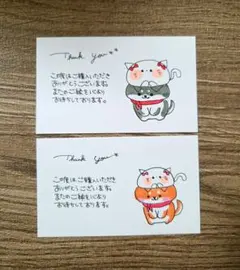 Thank you
この度はご購入いただき
ありがとうございます。
またのご縁を心より
お待ちしております。
Thank you
この度はご購入いただき
ありがとうございます。
またのご縁を心より
お待ちしております。